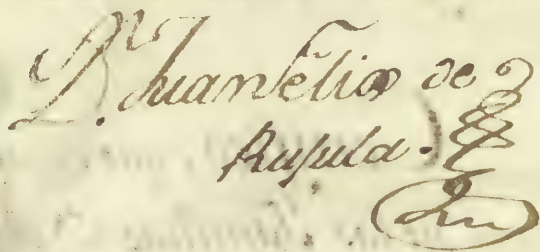 Dr. Juan Felix de
Rusula.